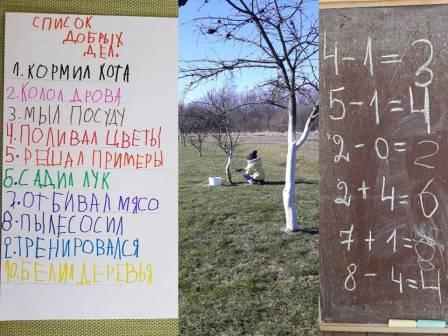 СПИСОК
ДОБРЫХ
ДЕЛ:
1. КОРМИЛ КОТА
2. КОЛОЛ ДРОВА
3. МЫЛ ПОСУДУ
4. ПОЛИВАЛ ЦВЕТЫ
5. РЕШАЛ ПРИМЕРЫ
6. САДИЛ ЛУК
7. ОТБИВАЛ МЯСО
8. ПЫЛЕСОСИЛ
9. ТРЕНИРОВАЛСЯ
10. БЕЛИЛ ДЕРЕВЬЯ
4-1=3
5-1=4
2-0=2
2+4=6
7+1=8
8-4=4